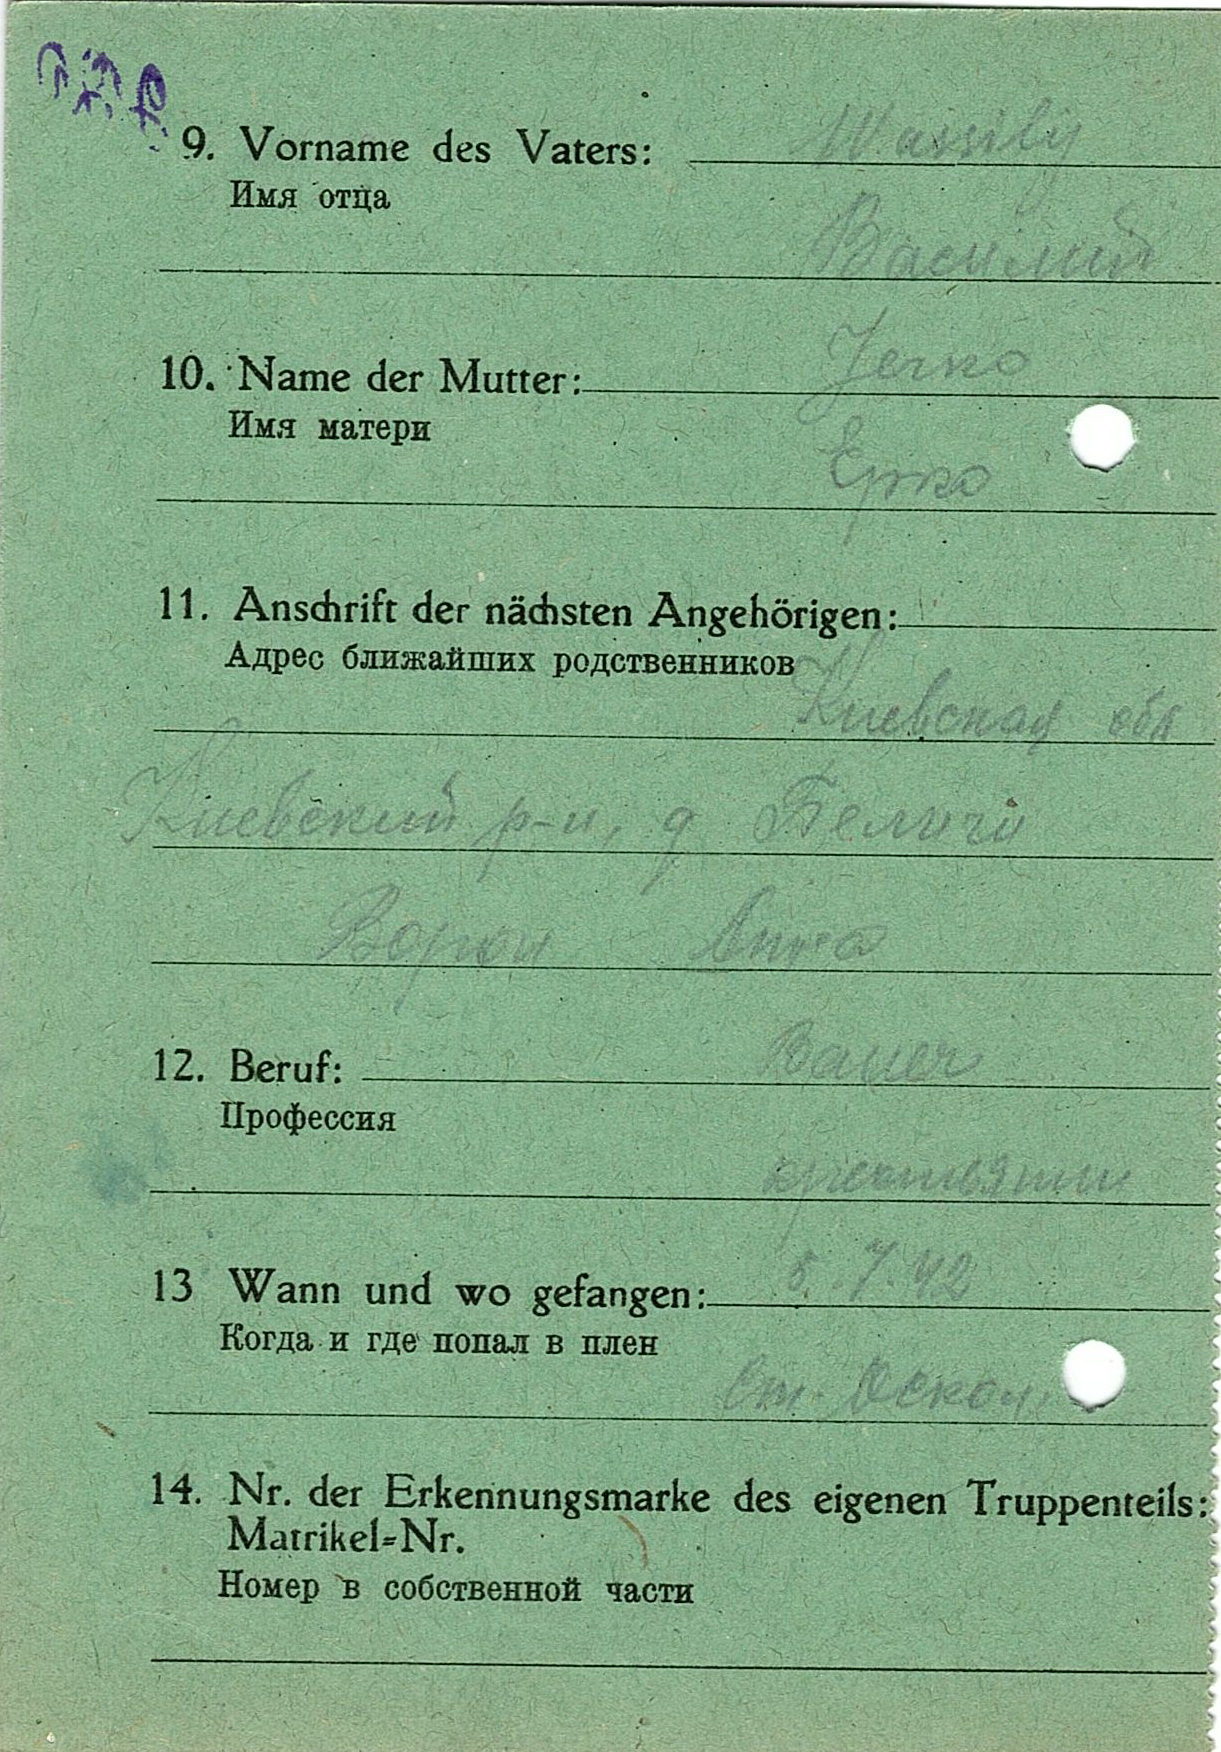 9. Vorname des Vaters: Wassilij
Имя отца
Василий
10. Name der Mutter: Jerko
Имя матери
Ерко
11. Anschrift der nächsten Angehörigen:
Адрес ближайших родственников
Киевская обл
Киевский р-н, д Беличи
Анна
12. Beruf: Bauer
Профессия
крестьянин
13 Wann und wo gefangen: 5. 7 42
Когда и где попал в плен
Ст. Оскол
14. Nr. der Erkennungsmarke des eigenen Truppenteils:
Matrikel=Nr.
Номер в собственной части